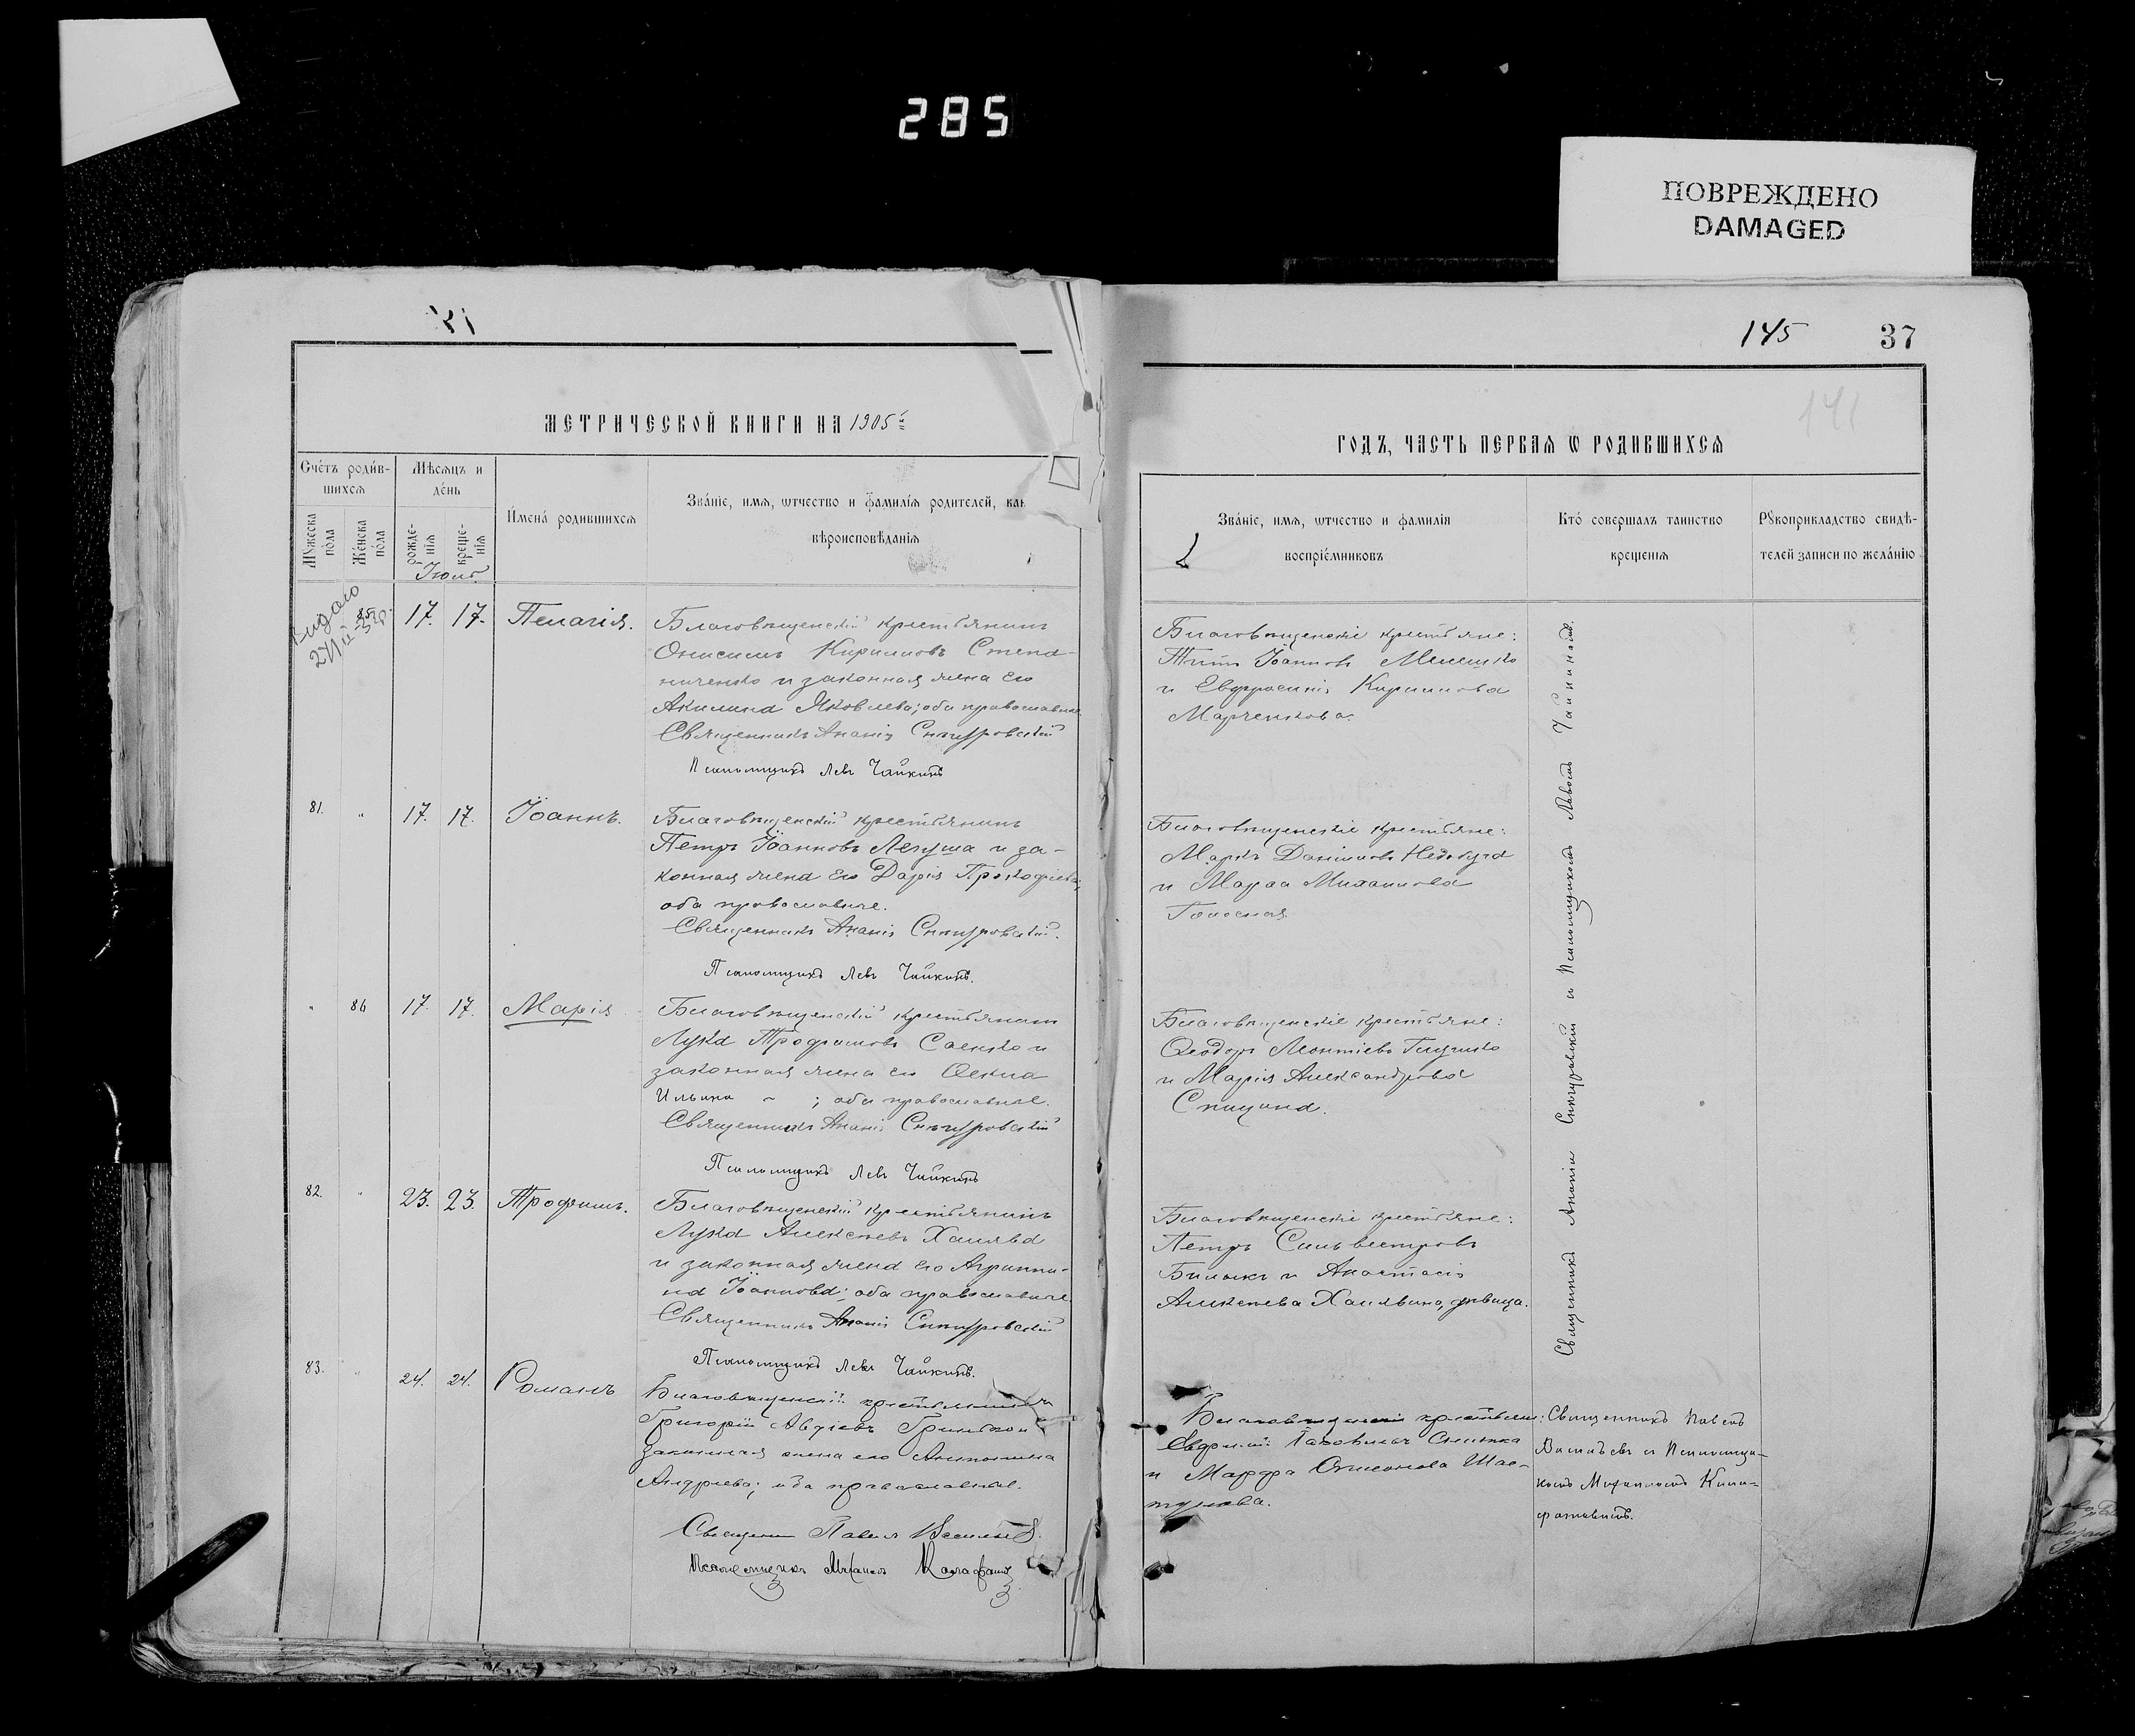 285
ПОВРЕЖДЕНО
DAMAGED
145 37
141
МЕТРИЧЕСКОЙ КНИГИ НА 1905й
ГОДЪ, ЧАСТЬ ПЕРВАЯ Ѡ РОДИВШИХСЯ
Счетъ родив-
шихся
Мужеска
пола
Женска
пола
Мѣсяцъ и
день
рожде-
нія
креще-
нія
Имена родившихся
Званіе, имя, ѡтчество и фамилія родителей, как
вѣроисповѣданія
Званіе, имя, ѡтчество и фамилія
воспріемниковъ
Кто совершалъ таинство
крещенія
Рукоприкладство свидѣ-
телей записи по желанію
85. 17. 17. Пелагія.
Благовѣщенскій крестьянинъ
Онисимъ Кирилловъ Степа-
ниченко и законная жена его
Акилина Яковлева; оба православные
Священникъ Ананія Снѣгуровскій
Псаломщикъ Левъ Чайкинъ
Благовѣщенскіе крестьяне:
Титъ Іоанновъ Мелешко
и Евфросинія Кириллова
Марченкова.
Священникъ Ананія Снѣгуровскій и Псаломщикомъ Львомъ Чайкинымъ.
81. " 17. 17. Іоаннъ.
Благовѣщенскій крестьянинъ
Петръ Іоанновъ Легуша и за-
конная жена его Дарія Прокофіева;
оба православные.
Священникъ Ананія Снѣгуровскій.
Псаломщикъ Левъ Чайкинъ.
Благовѣщенскіе крестьяне:
Маркъ Даниловъ
и Михаилова
" 86 17. 17. Марія
Благовѣщенскій крестьянинъ
Лука Трофимовъ Саенко и
законная жена его Ѳекла
Ильина ; оба православные.
Священникъ Ананія Снѣгуровскій
Псаломщикъ Левъ Чайкинъ
Благовѣщенскіе крестьяне:
Ѳеодоръ Леонтіевъ
и Марія Александрова
Спицына.
82. " 23. 23. Трофимъ.
Благовѣщенскій крестьянинъ
Лука Алексѣевъ Халява
и законная жена его Агриппи-
на Іоаннова; оба православные.
Священникъ Ананія Снѣгуровскій
Псаломщикъ Левъ Чайкинъ.
Благовѣщенскіе крестьяне:
Петръ Сильвестровъ
Билыкъ и Анастасія
Алексѣева Халявина, дѣвица.
83. " 24. 24. Романъ
Благовѣщенскій крестьянинъ
Григорій Авдіевъ
законная жена его Антонина
Андреева; оба православные.
Священникъ Павелъ Васильевъ.
Псаломщикъ Михаилъ
Благовѣщенскіе крестьяне:
и Марфа
Священникъ Павелъ
Васильевъ и Псаломщи-
комъ Михаиломъ